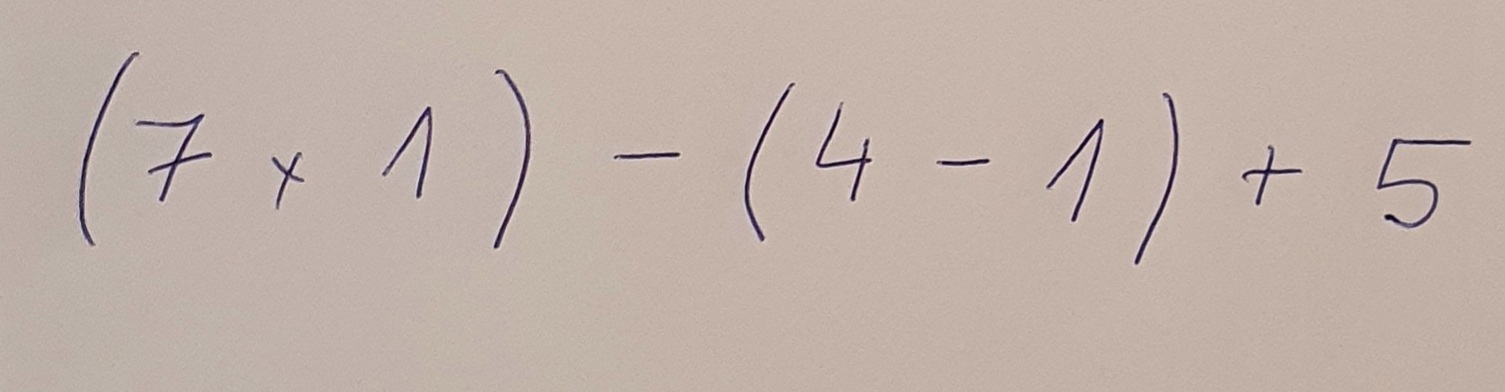 (7 x 1) - (4 - 1) + 5